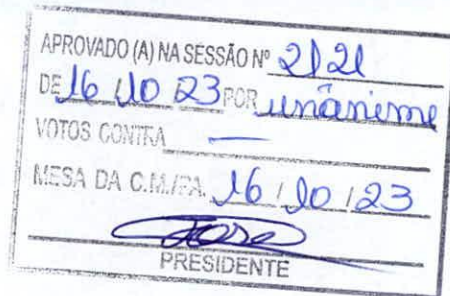 APROVADO (A) NA SESSÃO Nº 2121
DE 16/10/23 POR unânime
VOTOS CONTRA —
MESA DA C.M./FA. 16/10/23
PRESIDENTE